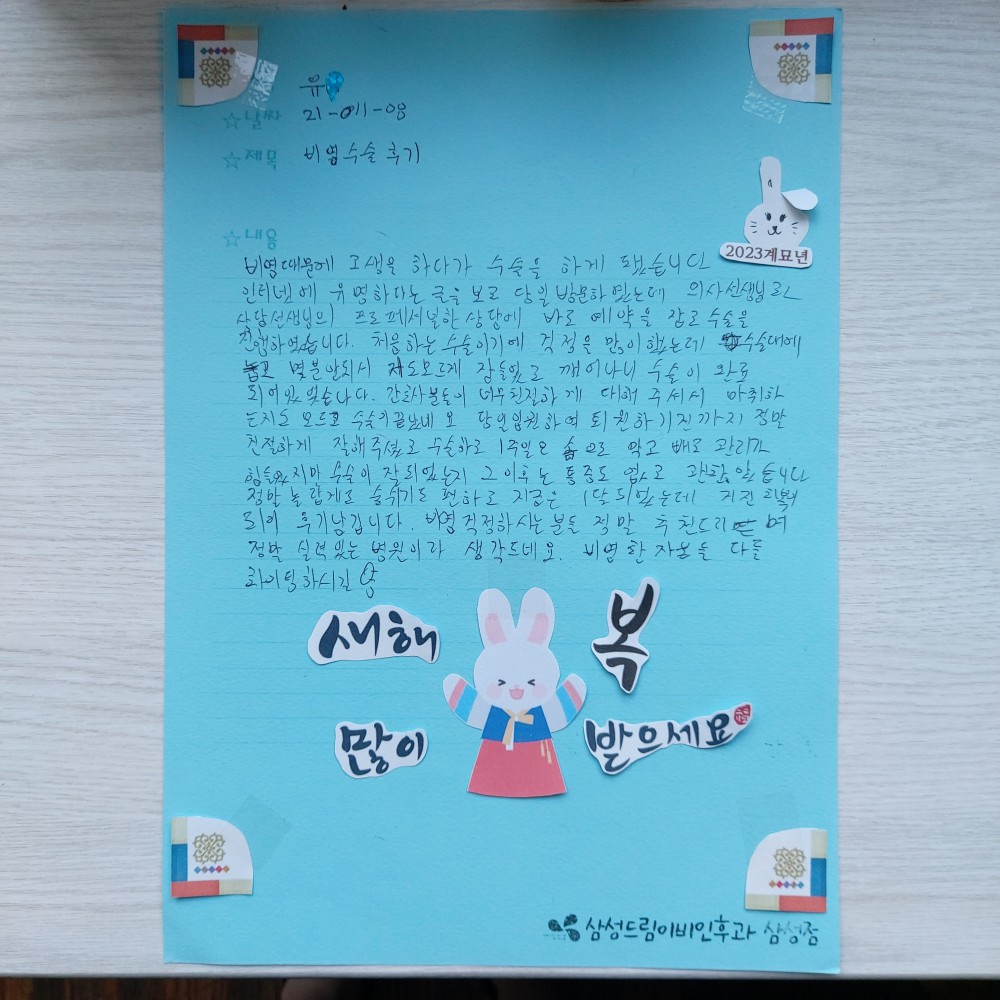 유
☆날짜 21-011-08
☆제목 비염수술 후기
2023계묘년
☆내용
비염때문에 고생을 하다가 수술을 하게 됐습니다
인터넷에 유명하다는 글을 보고 당일 방문하였는데 의사선생님과
상담선생님의 프로페셔널한 상담에 바로 예약을 잡고 수술을
진행하였습니다. 처음하는 수술이기에 걱정을 많이했는데 수술대에
몇분안되서 저도모르게 잠들었고 깨어나니 수술이 완료
되어있었습니다. 간호사분들이 너무친절하게 대해 주셔서 마취하
는지도 모르고 수술이끝났네요 당일입원하여 퇴원하기전까지 정말
친절하게 잘해주셨고 수술하고 1주일은 솜으로 막고 빼고 관리가
힘들었지만 수술이 잘되었는지 그 이후는 통증도 없고 괜찮았습니다
정말 놀랍게도 숨쉬기도 편하고 지금은 1달되었는데 거진 회복
되어 후기남깁니다. 비염걱정하시는분들 정말 추천드리며
정말 실력있는 병원이라 생각드네요. 비염 환자분들 다들
화이팅하시길
새해 복
많이 받으세요
삼성드림이비인후과 삼성점